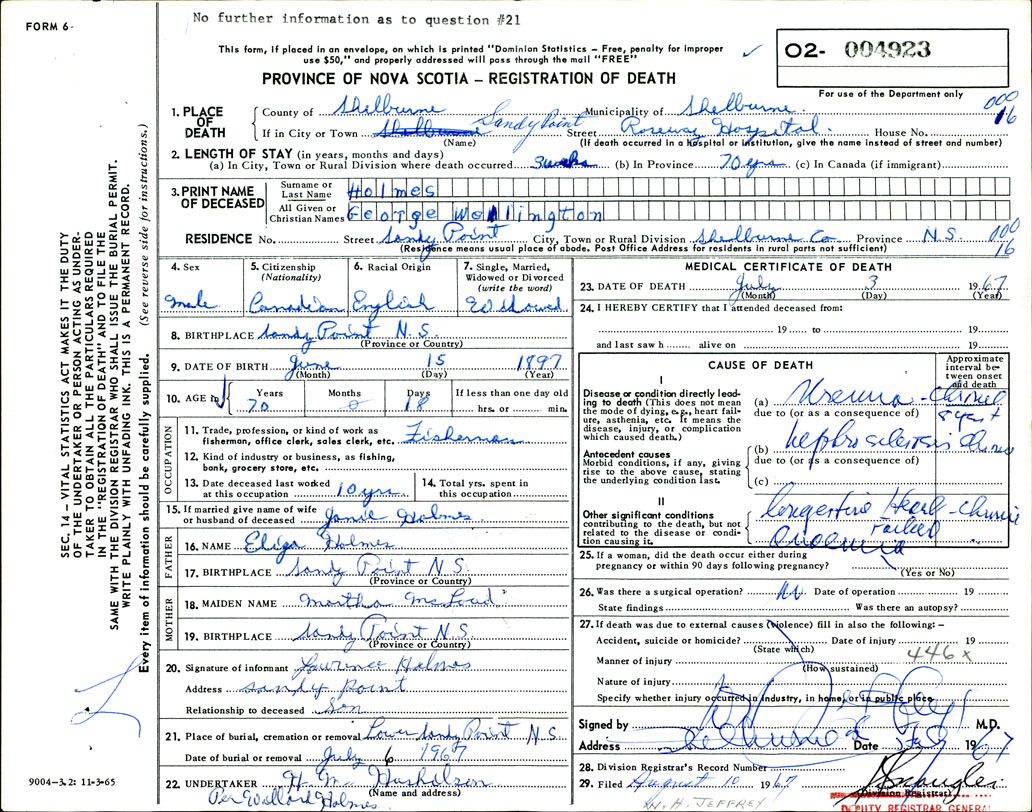 No further information as to question #21
FORM 6-
This form, if placed in an envelope, on which is printed "Dominion Statistics – Free, penalty for improper
use $50," and properly addressed will pass through the mail "FREE"
PROVINCE OF NOVA SCOTIA – REGISTRATION OF DEATH
02- 004923
For use of the Department only
000
16
1. PLACE OF DEATH
County of Shelburne Municipality of Shelburne
If in City or Town Shelburne Sandy Point Street Roseway Hospital. House No.
(Name) (If death occurred in a hospital or institution, give the name instead of street and number)
2. LENGTH OF STAY (in years, months and days)
(a) In City, Town or Rural Division where death occurred 3 wks (b) In Province 70 yrs (c) In Canada (if immigrant)
3. PRINT NAME OF DECEASED
Surname or Last Name Holmes
All Given or Christian Names George Wellington
RESIDENCE No. Street Sandy Point City, Town or Rural Division Shelburne Co Province N.S. 000
16
(Residence means usual place of abode. Post Office Address for residents in rural parts not sufficient)
4. Sex
Male
5. Citizenship
(Nationality)
Canadian
6. Racial Origin
English
7. Single, Married,
Widowed or Divorced
(write the word)
Widowed
8. BIRTHPLACE Sandy Point N.S.
(Province or Country)
9. DATE OF BIRTH June 15 1897
(Month) (Day) (Year)
10. AGE in
Years 70
Months 0
Days 18
If less than one day old
hrs. or min.
OCCUPATION
11. Trade, profession, or kind of work as
fisherman, office clerk, sales clerk, etc. Fisherman
12. Kind of industry or business, as fishing,
bank, grocery store, etc.
13. Date deceased last worked
at this occupation 10 yrs
14. Total yrs. spent in
this occupation
15. If married give name of wife
or husband of deceased Janie Holmes
FATHER
16. NAME Holmes
17. BIRTHPLACE Sandy Point N.S.
(Province or Country)
MOTHER
18. MAIDEN NAME Martha
19. BIRTHPLACE Sandy Point N.S.
(Province or Country)
20. Signature of informant Laurence Holmes
Address Sandy Point
Relationship to deceased Son
21. Place of burial, cremation or removal Lower Sandy Point N.S.
Date of burial or removal July 6 1967
22. UNDERTAKER H. M.
(Name and address)
Per Holmes
MEDICAL CERTIFICATE OF DEATH
23. DATE OF DEATH July 3 1967
(Month) (Day) (Year)
24. I HEREBY CERTIFY that I attended deceased from:
19 to 19
and last saw h alive on 19
CAUSE OF DEATH
Approximate
interval be-
tween onset
and death
I
Disease or condition directly lead-
ing to death (This does not mean
the mode of dying, e.g., heart fail-
ure, asthenia, etc. It means the
disease, injury, or complication
which caused death.)
(a) Uremia - Chronic
due to (or as a consequence of)
Antecedent causes
Morbid conditions, if any, giving
rise to the above cause, stating
the underlying condition last.
(b) Nephrosclerosis Chronic
due to (or as a consequence of)
(c)
II
Other significant conditions
contributing to the death, but not
related to the disease or condi-
tion causing it.
Congestive Heart - Chronic
Failure
Anaemia
25. If a woman, did the death occur either during
pregnancy or within 90 days following pregnancy?
(Yes or No)
26. Was there a surgical operation? No Date of operation 19
State findings Was there an autopsy?
27. If death was due to external causes (violence) fill in also the following: –
Accident, suicide or homicide? Date of injury 19
(State which)
446 x
Manner of injury
(How sustained)
Nature of injury
Specify whether injury occurred in industry, in home, or in public place
Signed by M.D.
Address Shelburne Date 1967
28. Division Registrar's Record Number
29. Filed August 10 1967
Division Registrar
W. H. JEFFREY
DEPUTY REGISTRAR GENERAL
SEC. 14 – VITAL STATISTICS ACT MAKES IT THE DUTY
OF THE UNDERTAKER OR PERSON ACTING AS UNDER-
TAKER TO OBTAIN ALL THE PARTICULARS REQUIRED
IN THE "REGISTRATION OF DEATH" AND TO FILE THE
SAME WITH THE DIVISION REGISTRAR WHO SHALL ISSUE THE BURIAL PERMIT.
WRITE PLAINLY WITH UNFADING INK. THIS IS A PERMANENT RECORD.
Every item of information should be carefully supplied. (See reverse side for instructions.)
9004-3.2: 11-3-65